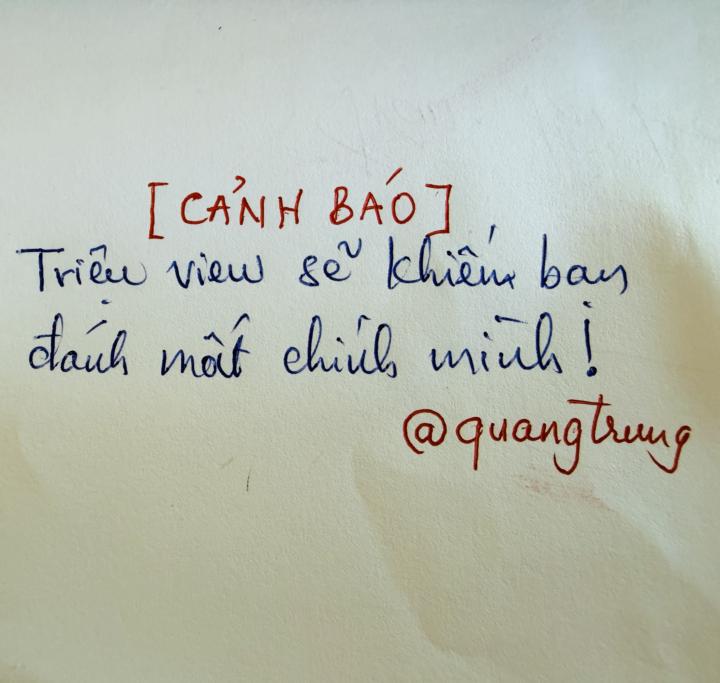 [CẢNH BÁO]
Triệu view sẽ khiến bạn
đánh mất chính mình!
@quangtrung